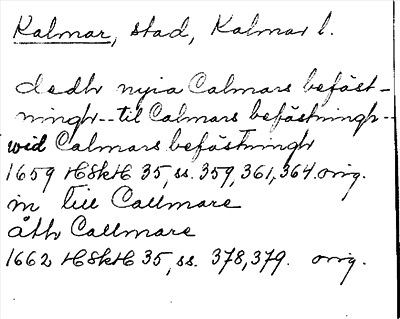 Kalmar, stad, Kalmar l.
dedh nyia Calmars befäst-
ningh -- til Calmars befästningh --
wid Calmars befästningh
1659 HSkH 35, ss. 359, 361, 364. orig.
in till Callmare
åth Callmare
1662 HSkH 35, ss. 378, 379. orig.